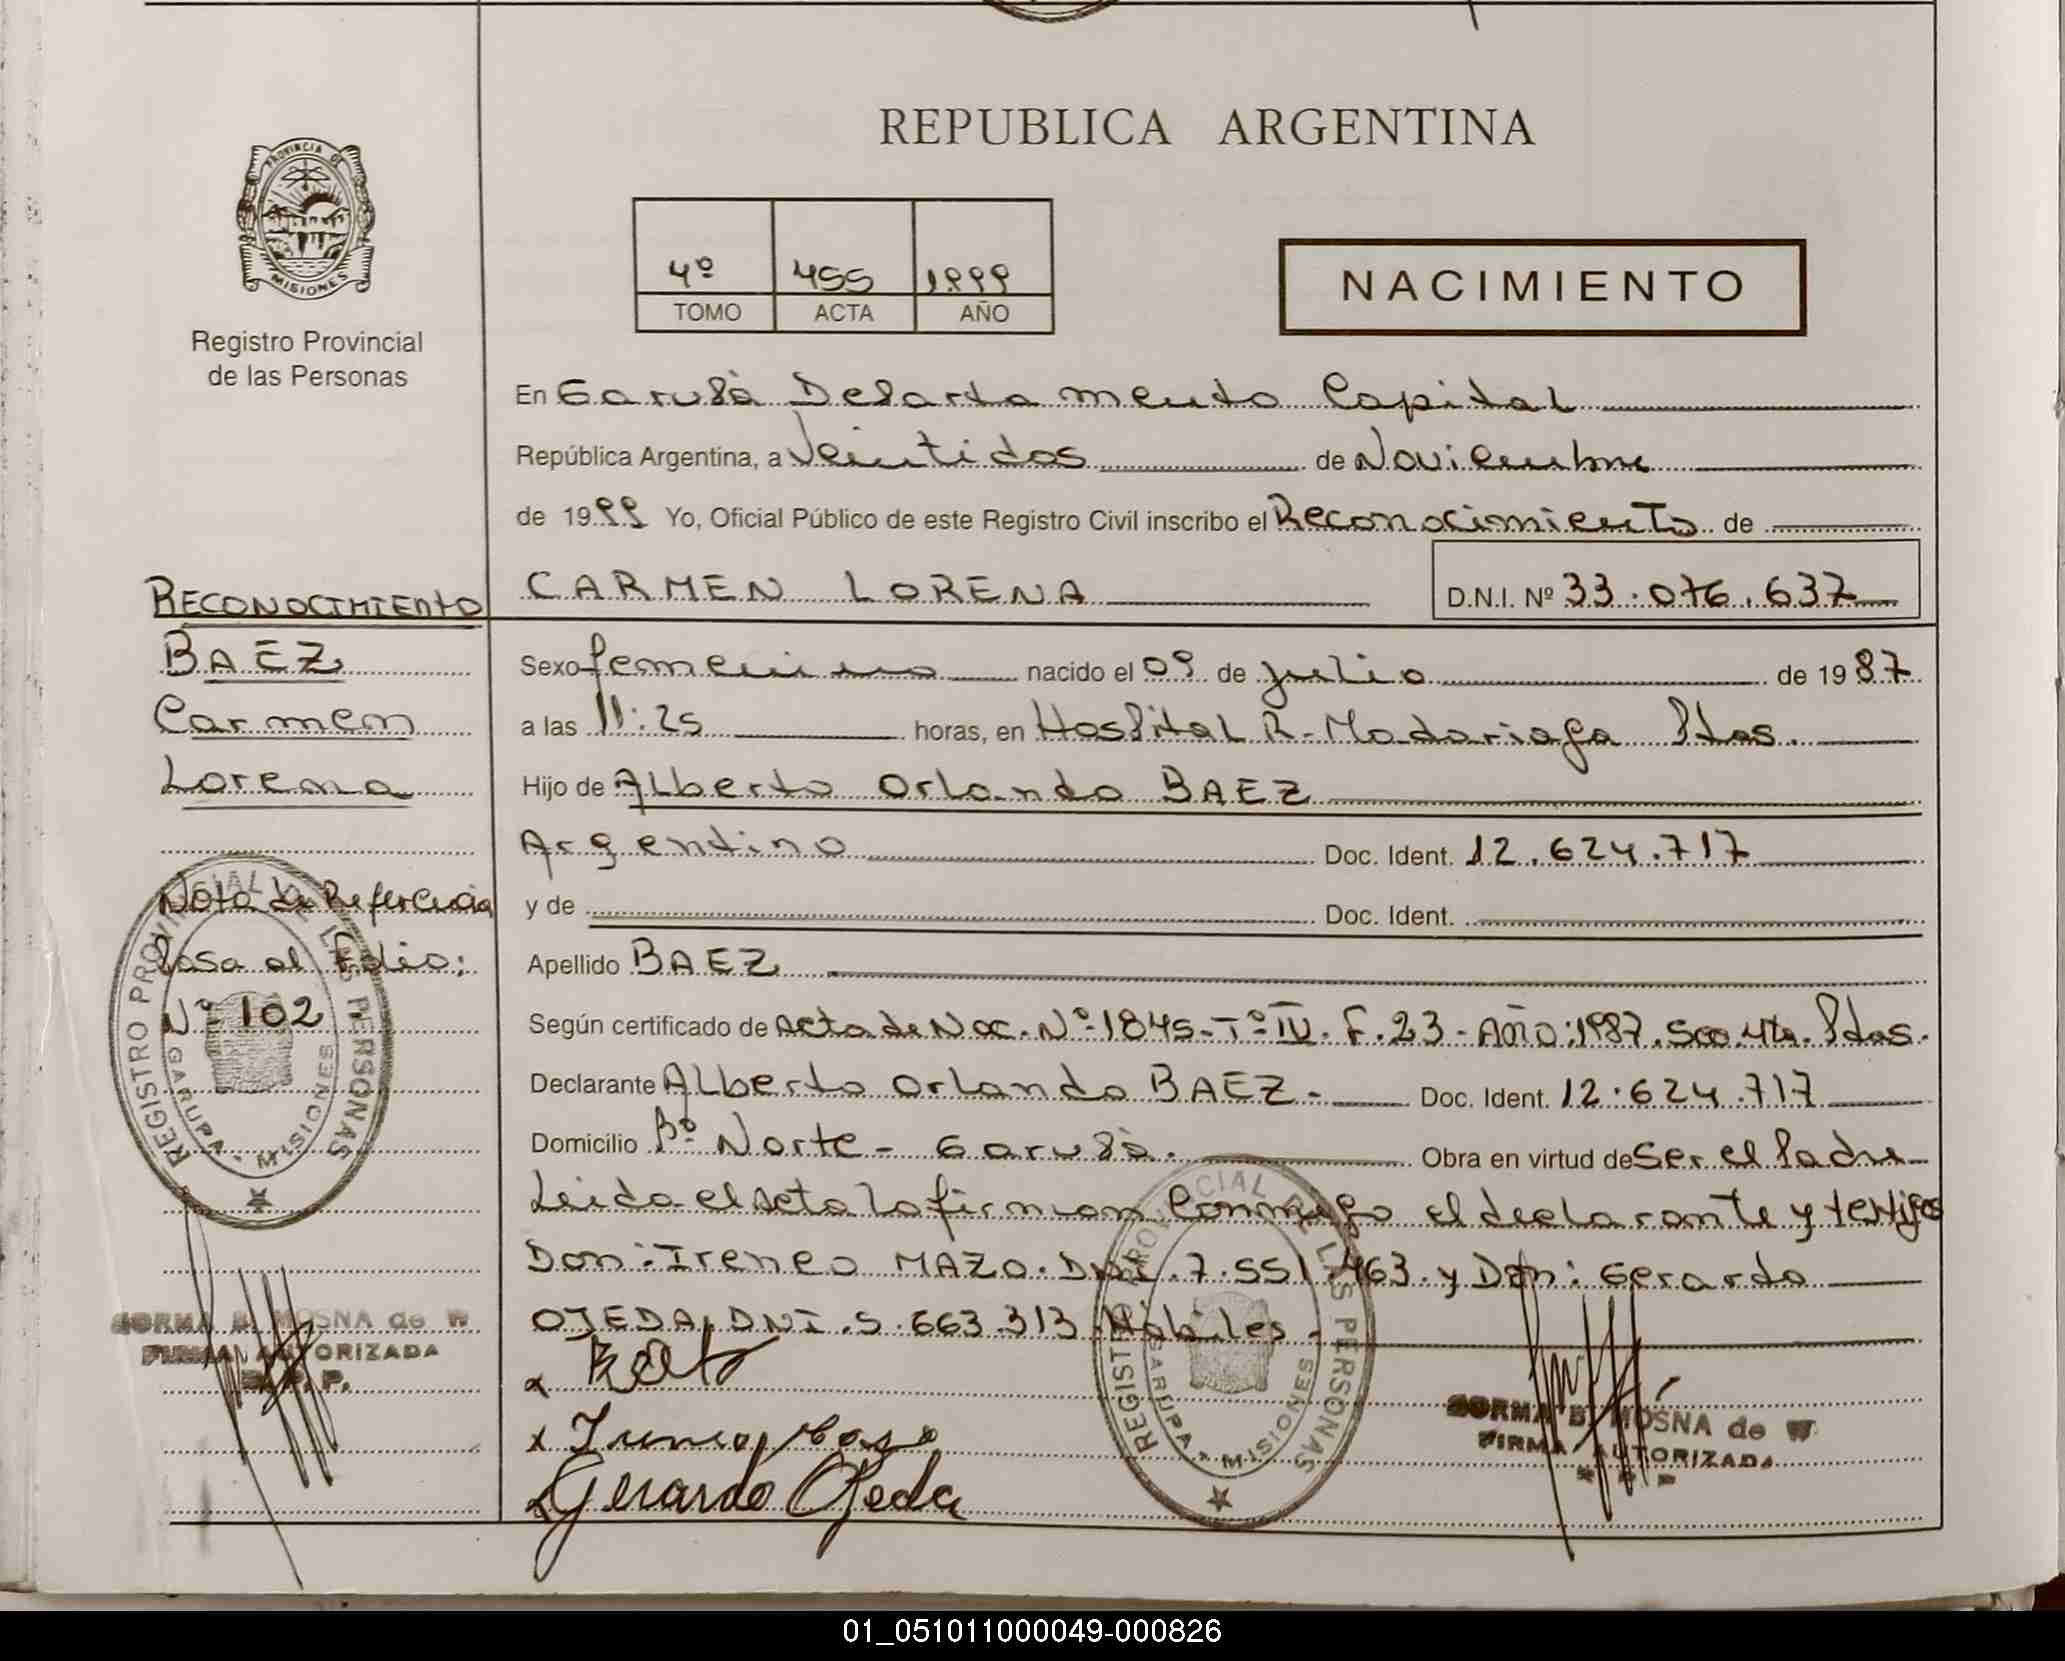 REPUBLICA ARGENTINA
PROVINCIA DE
MISIONES
Registro Provincial
de las Personas
4º 455 1999
TOMO ACTA AÑO
NACIMIENTO
En Garupá Departamento Capital
República Argentina, a Veintidos de Noviembre
de 1999 Yo, Oficial Público de este Registro Civil inscribo el Reconocimiento de
CARMEN LORENA D.N.I. Nº 33.076.637
RECONOCIMIENTO
BAEZ
Carmen
Lorena
Nota de Referencia
Pasa al Folio:
Nº 102
REGISTRO PROVINCIAL DE LAS PERSONAS
GARUPA - MISIONES
NORMA B. MOSNA de W
FIRMA AUTORIZADA
R. P. P.
Sexo femenino nacido el 09 de julio de 1987
a las 11:25 horas, en Hospital R. Madariaga Pdas.
Hijo de Alberto Orlando BAEZ
Argentino Doc. Ident. 12.624.717
y de Doc. Ident.
Apellido BAEZ
Según certificado de Acta de Nac. Nº 1845 - Tº IV. F. 23 - Año: 1987. Scc. 4ta. Pdas.
Declarante Alberto Orlando BAEZ - Doc. Ident. 12.624.717
Domicilio Bº Norte - Garupá. Obra en virtud de Ser el Padre
Leida el acta la firman conmigo el declarante y testigos
Don: Ireneo MAZO. DNI. 7.551.463. y Don: Gerardo
OJEDA. DNI. 5.663.313. Hábiles.
x
x
x Gerardo Ojeda
REGISTRO PROVINCIAL DE LAS PERSONAS
GARUPA - MISIONES
NORMA B. MOSNA de W
FIRMA AUTORIZADA
R P P
01_051011000049-000826